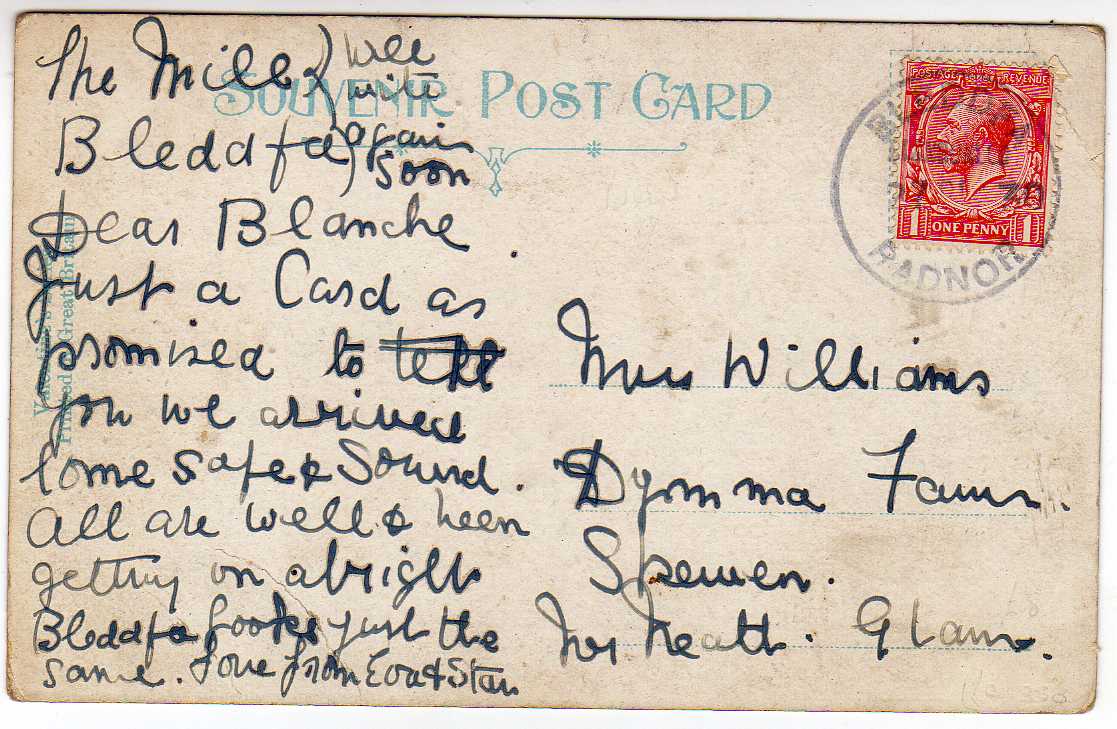 The Mill
Bleddfa
will
write
again
soon
SOUVENIR POST CARD
Dear Blanche
Just a Card as
promised to tell
you we arrived
home safe & Sound.
All are well & been
getting on alright
Bleddfa looks just the
same. Love from Eva & Stan
Mrs Williams
Dymma Farm.
Skewen.
Nr Neath. Glam.
POSTAGE REVENUE
1 ONE PENNY 1
RADNOR
Printed Great Britain